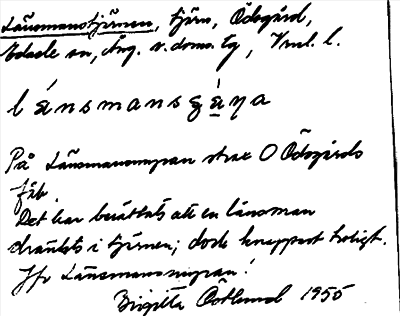 Länsmanstjärnen, tjärn, Ödegård,
Edsele sn, Ång. v. doms. tg, Vml. l.
lánsmansʒæ̀ṇa
På Länsmansmyran strax O Ödegårds
fäb.
Det har berättats att en länsman
dränkts i tjärnen; dock knappast troligt.
Jfr Länsmansmyran!
Birgitta Östlund 1955